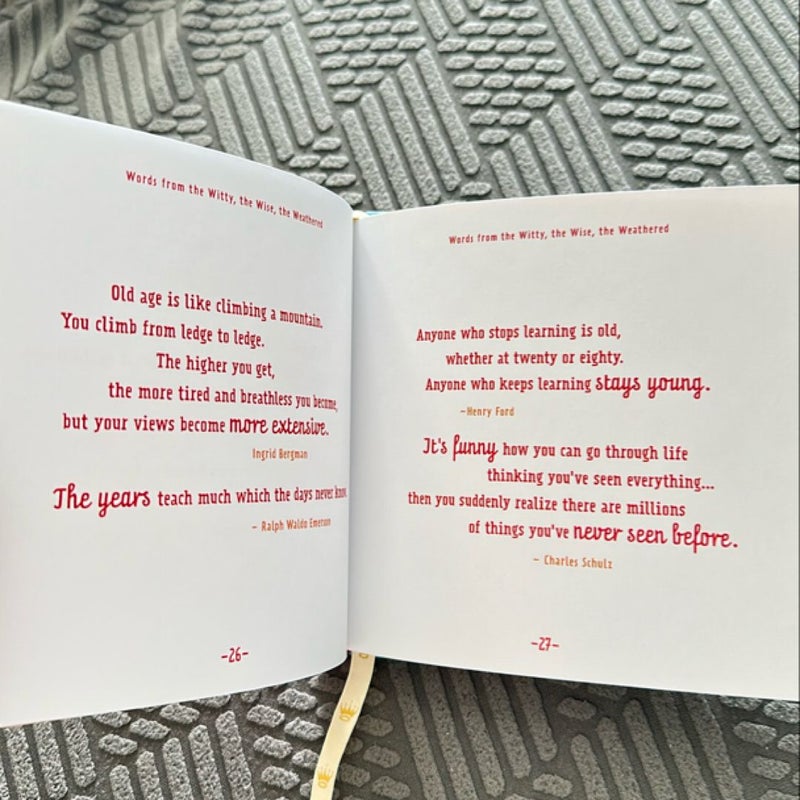 Words from the Witty, the Wise, the Weathered
Old age is like climbing a mountain.
You climb from ledge to ledge.
The higher you get,
the more tired and breathless you become,
but your views become more extensive.
Ingrid Bergman
The years teach much which the days never know.
– Ralph Waldo Emerson
–26–
Words from the Witty, the Wise, the Weathered
Anyone who stops learning is old,
whether at twenty or eighty.
Anyone who keeps learning stays young.
–Henry Ford
It's funny how you can go through life
thinking you've seen everything...
then you suddenly realize there are millions
of things you've never seen before.
– Charles Schulz
–27–